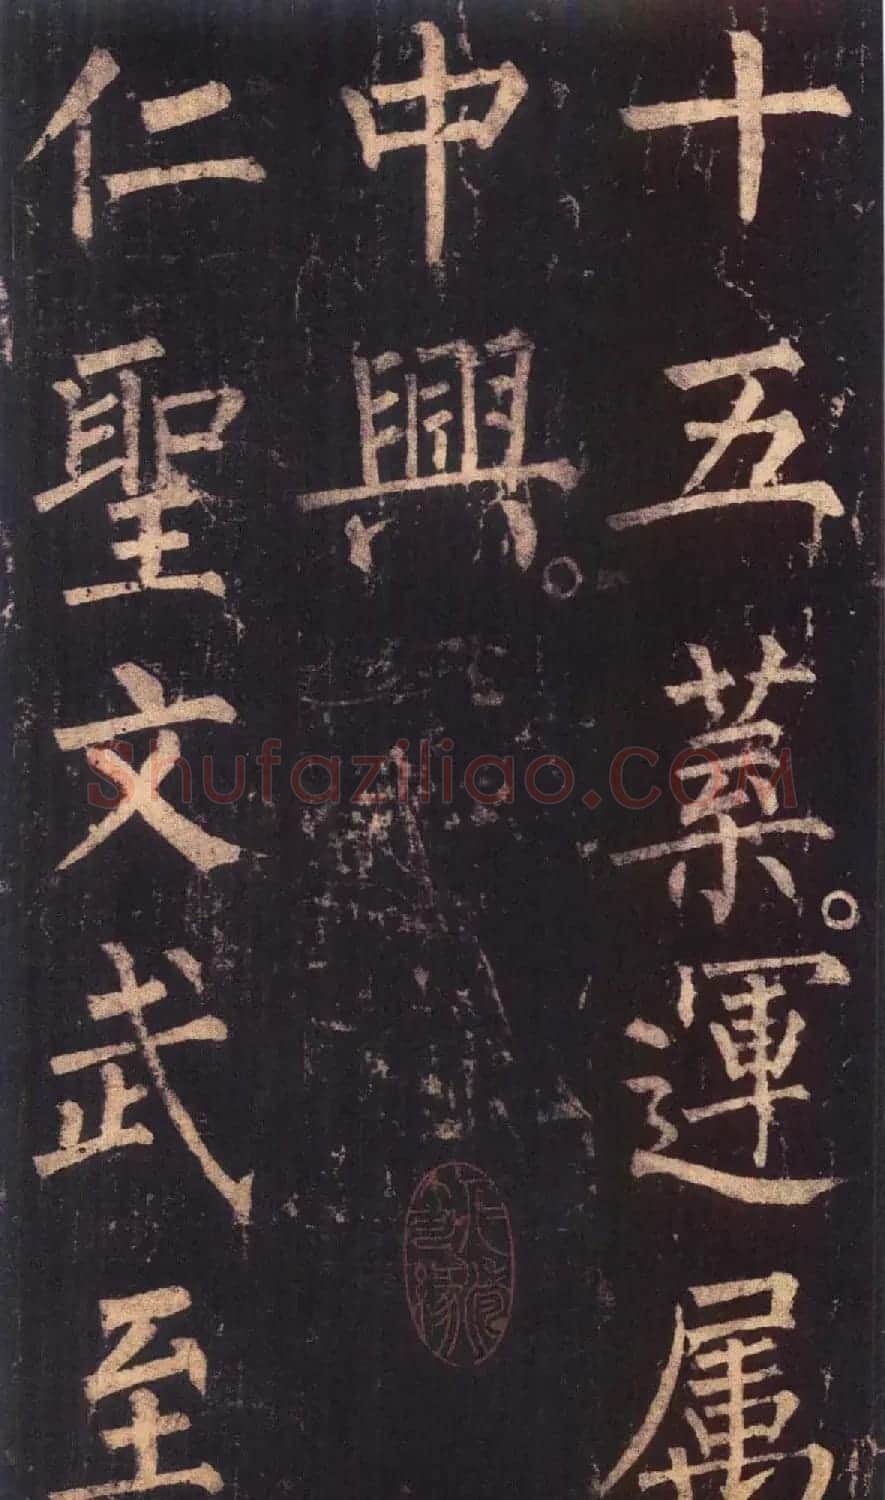 十五葉運属
中興
仁聖文武至
Shufaziliao.COM